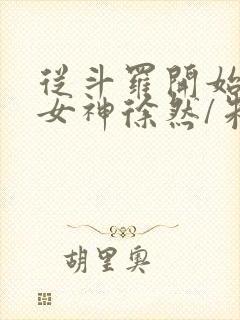 從斗羅開始
女神徐然/
胡里奧